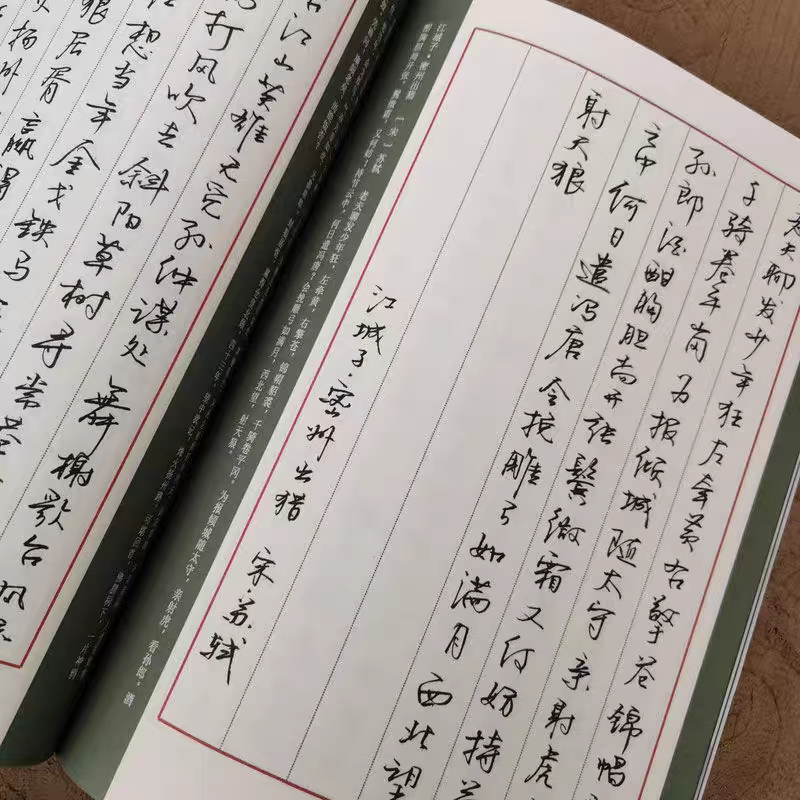 老夫聊发少年狂左牵黄右擎苍锦帽
千骑卷平岗为报倾城随太守亲射虎
孙郎酒酣胸胆尚开张鬓微霜又何妨持
云中何日遣冯唐会挽雕弓如满月西北望
射天狼
江城子·密州出猎 宋·苏轼
江城子·密州出猎 [宋]苏轼 老夫聊发少年狂,左牵黄,右擎苍,锦帽貂裘,千骑卷平冈。为报倾城随太守,亲射虎,看孙郎。酒
酣胸胆尚开张,鬓微霜,又何妨!持节云中,何日遣冯唐?会挽雕弓如满月,西北望,射天狼。
古江山英雄无觅孙仲谋处舞榭歌台风流
打风吹去斜阳草树寻常巷
想当年金戈铁马
狼居胥赢得
扬州